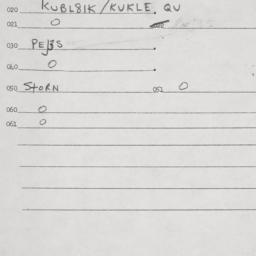 020 KUBLBIK/KUKLE, QU
021 O
030 PEJBS .
040 O .
050 STORN 051 O
060 O
061 O